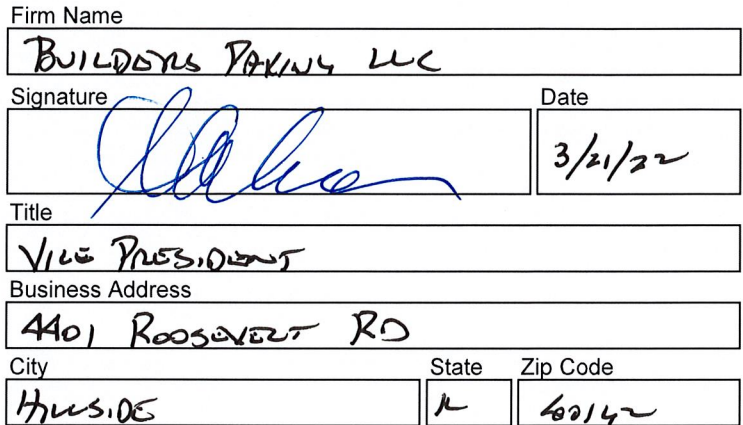 Firm Name
BUILDERS PAVING LLC
Signature
Date
3/21/22
Title
VICE PRESIDENT
Business Address
4401 ROOSEVELT RD
City
State
Zip Code
HILLSIDE
IL
60142